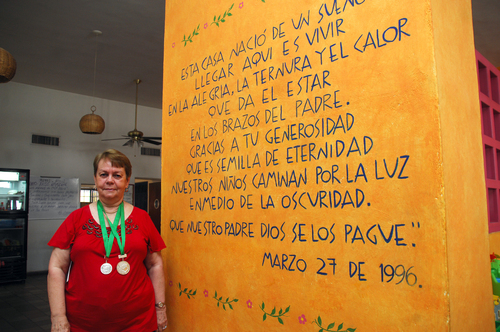 ESTA CASA NACIÓ DE UN SUEÑO
LLEGAR AQUI ES VIVIR
EN LA ALEGRIA, LA TERNURA Y EL CALOR
QUE DA EL ESTAR
EN LOS BRAZOS DEL PADRE.
GRACIAS A TU GENEROSIDAD
QUE ES SEMILLA DE ETERNIDAD
NUESTROS NIÑOS CAMINAN POR LA LUZ
EN MEDIO DE LA OSCURIDAD.
QUE NUESTRO PADRE DIOS SE LOS PAGUE."
MARZO 27 DE 1996.